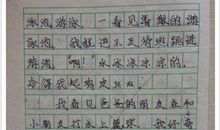 泳池游泳。一看见清澈的游
泳池，我就迫不及待跳进
游泳，啊！水冰冰凉凉的，
冷得我起鸡皮豆。
我看见爸爸的朋友在和
小朋友打水上篮球，我好奇